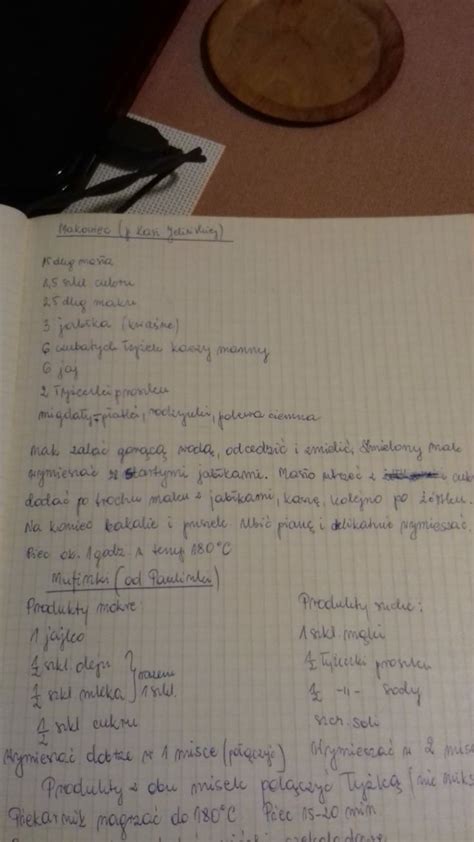 Makowiec (p. Kasi
15 dkg masła
1,5 szkl cukru
25 dkg maku
3 jabłka (kwaśne)
6 czubatych łyżek kaszy manny
6 jaj
2 łyżeczki proszku
migdały-płatki, rodzynki, polewa ciemna
Mak zalać gorącą wodą, odcedzić i zmielić. Zmielony mak
wymieszać z startymi jabłkami. Masło utrzeć z cuk
dodać po trochu maku z jabłkami, kaszę, kolejno po żółtku.
Na koniec bakalie i proszek. Ubić pianę i delikatnie wymieszać.
Piec ok. 1 godz. w temp 180°C
Mufinki (od Paulinki)
Produkty mokre: Produkty suche:
1 jajko 1 szkl. mąki
1/2 szkl. oleju } razem 1/2 łyżeczki proszku
1/2 szkl mleka } 1 szkl. 1/2 -11- sody
1/2 szkl cukru szcz. soli
Wymieszać dobrze w 1 misce (połączyć) Wymieszać w 2 misce
Produkty z obu misek połączyć łyżką (nie miks
Piekarnik nagrzać do 180°C Piec 15-20 min